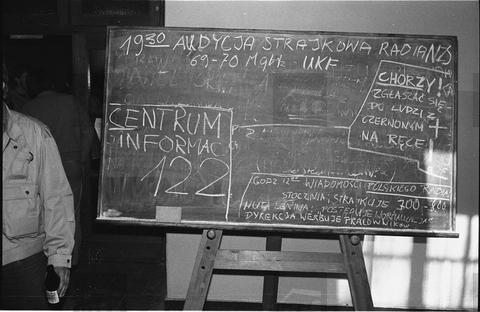 19³⁰ AUDYCJA STRAJKOWA RADIA NZS
69-70 MgHz - UKF
CHORZY!
ZGŁASZAĆ SIĘ
DO LUDZI Z
CZERWONYM +
NA RĘCE!
CENTRUM
INFORMAC
122
GODZ 12⁰⁰ WIADOMOŚCI POLSKIEGO RADIA
STOCZNIA: STRAJKUJE 700-
HUTA LENINA:
DYREKCJA WERBUJE PRACOWNIKÓW